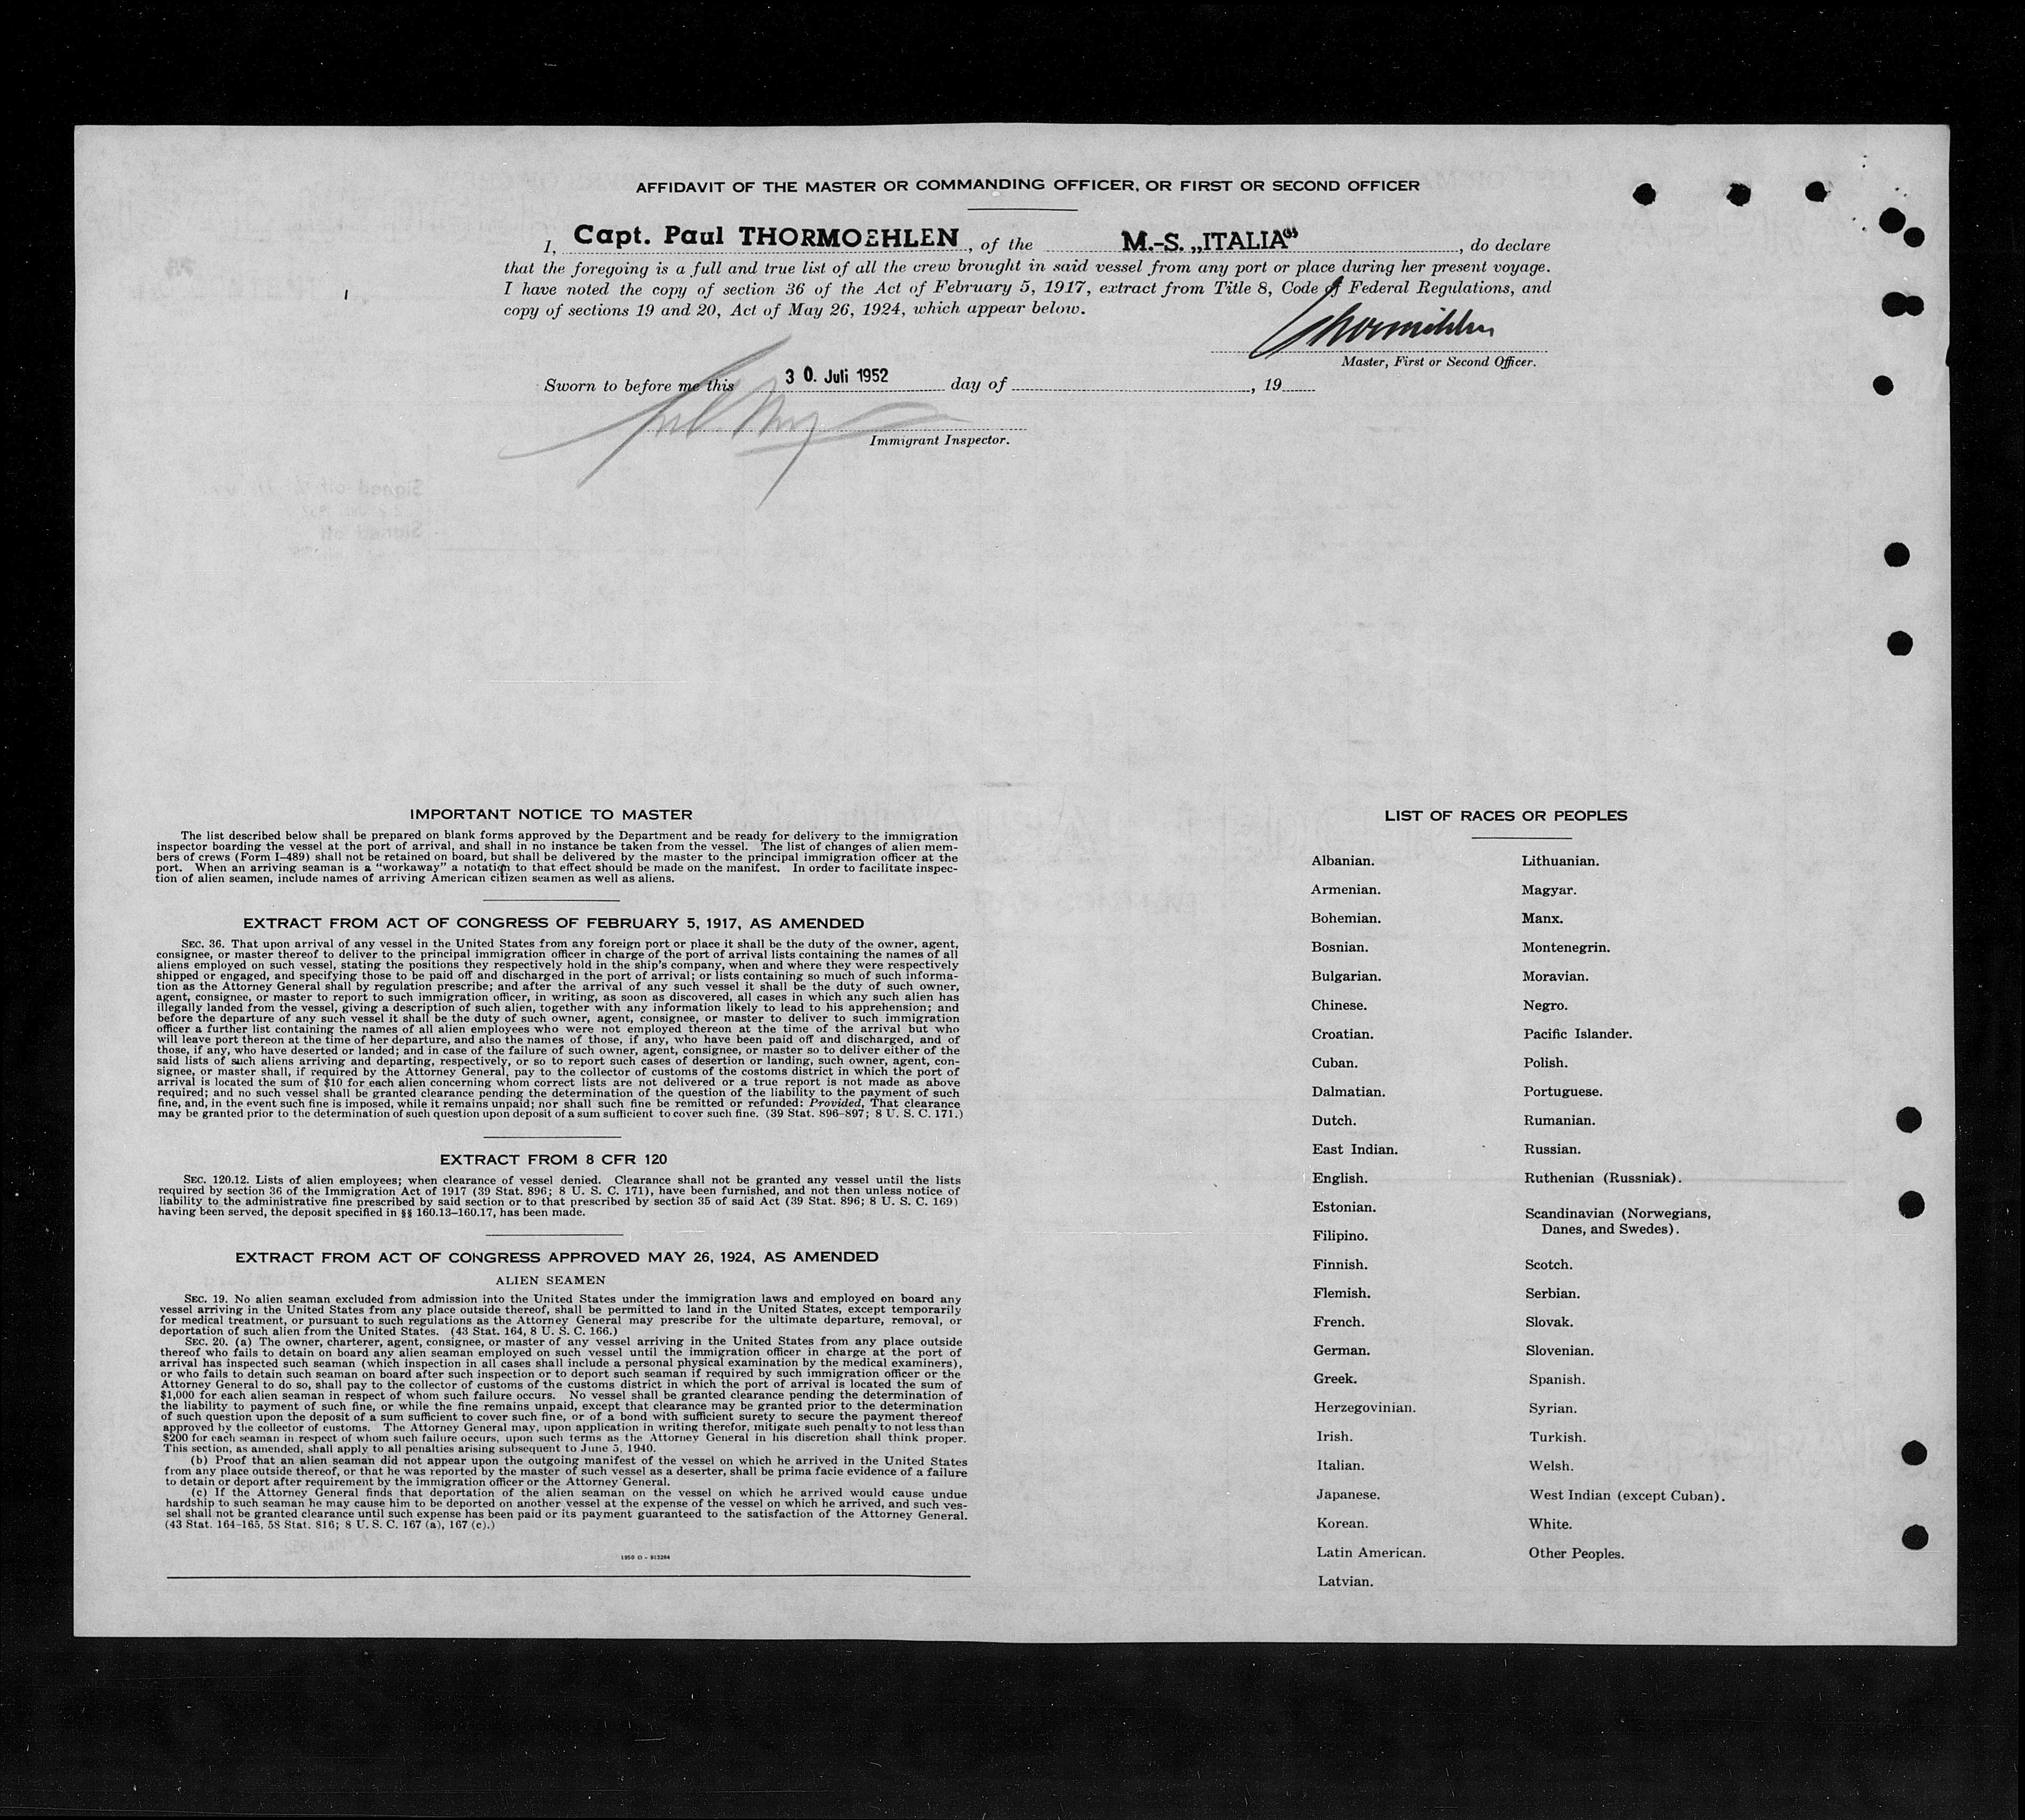 AFFIDAVIT OF THE MASTER OR COMMANDING OFFICER, OR FIRST OR SECOND OFFICER
I, Capt. Paul THORMOEHLEN, of the M.-S. „ITALIA“, do declare
that the foregoing is a full and true list of all the crew brought in said vessel from any port or place during her present voyage.
I have noted the copy of section 36 of the Act of February 5, 1917, extract from Title 8, Code of Federal Regulations, and
copy of sections 19 and 20, Act of May 26, 1924, which appear below.
Master, First or Second Officer.
Sworn to before me this 30. Juli 1952 day of , 19
Immigrant Inspector.
IMPORTANT NOTICE TO MASTER
The list described below shall be prepared on blank forms approved by the Department and be ready for delivery to the immigration
inspector boarding the vessel at the port of arrival, and shall in no instance be taken from the vessel. The list of changes of alien mem-
bers of crews (Form I-489) shall not be retained on board, but shall be delivered by the master to the principal immigration officer at the
port. When an arriving seaman is a “workaway” a notation to that effect should be made on the manifest. In order to facilitate inspec-
tion of alien seamen, include names of arriving American citizen seamen as well as aliens.
EXTRACT FROM ACT OF CONGRESS OF FEBRUARY 5, 1917, AS AMENDED
SEC. 36. That upon arrival of any vessel in the United States from any foreign port or place it shall be the duty of the owner, agent,
consignee, or master thereof to deliver to the principal immigration officer in charge of the port of arrival lists containing the names of all
aliens employed on such vessel, stating the positions they respectively hold in the ship's company, when and where they were respectively
shipped or engaged, and specifying those to be paid off and discharged in the port of arrival; or lists containing so much of such informa-
tion as the Attorney General shall by regulation prescribe; and after the arrival of any such vessel it shall be the duty of such owner,
agent, consignee, or master to report to such immigration officer, in writing, as soon as discovered, all cases in which any such alien has
illegally landed from the vessel, giving a description of such alien, together with any information likely to lead to his apprehension; and
before the departure of any such vessel it shall be the duty of such owner, agent, consignee, or master to deliver to such immigration
officer a further list containing the names of all alien employees who were not employed thereon at the time of the arrival but who
will leave port thereon at the time of her departure, and also the names of those, if any, who have been paid off and discharged, and of
those, if any, who have deserted or landed; and in case of the failure of such owner, agent, consignee, or master so to deliver either of the
said lists of such aliens arriving and departing, respectively, or so to report such cases of desertion or landing, such owner, agent, con-
signee, or master shall, if required by the Attorney General, pay to the collector of customs of the costoms district in which the port of
arrival is located the sum of $10 for each alien concerning whom correct lists are not delivered or a true report is not made as above
required; and no such vessel shall be granted clearance pending the determination of the question of the liability to the payment of such
fine, and, in the event such fine is imposed, while it remains unpaid; nor shall such fine be remitted or refunded: Provided, That clearance
may be granted prior to the determination of such question upon deposit of a sum sufficient to cover such fine. (39 Stat. 896-897; 8 U. S. C. 171.)
EXTRACT FROM 8 CFR 120
SEC. 120.12. Lists of alien employees; when clearance of vessel denied. Clearance shall not be granted any vessel until the lists
required by section 36 of the Immigration Act of 1917 (39 Stat. 896; 8 U. S. C. 171), have been furnished, and not then unless notice of
liability to the administrative fine prescribed by said section or to that prescribed by section 35 of said Act (39 Stat. 896; 8 U. S. C. 169)
having been served, the deposit specified in §§ 160.13-160.17, has been made.
EXTRACT FROM ACT OF CONGRESS APPROVED MAY 26, 1924, AS AMENDED
ALIEN SEAMEN
SEC. 19. No alien seaman excluded from admission into the United States under the immigration laws and employed on board any
vessel arriving in the United States from any place outside thereof, shall be permitted to land in the United States, except temporarily
for medical treatment, or pursuant to such regulations as the Attorney General may prescribe for the ultimate departure, removal, or
deportation of such alien from the United States. (43 Stat. 164, 8 U. S. C. 166.)
SEC. 20. (a) The owner, charterer, agent, consignee, or master of any vessel arriving in the United States from any place outside
thereof who fails to detain on board any alien seaman employed on such vessel until the immigration officer in charge at the port of
arrival has inspected such seaman (which inspection in all cases shall include a personal physical examination by the medical examiners),
or who fails to detain such seaman on board after such inspection or to deport such seaman if required by such immigration officer or the
Attorney General to do so, shall pay to the collector of customs of the customs district in which the port of arrival is located the sum of
$1,000 for each alien seaman in respect of whom such failure occurs. No vessel shall be granted clearance pending the determination of
the liability to payment of such fine, or while the fine remains unpaid, except that clearance may be granted prior to the determination
of such question upon the deposit of a sum sufficient to cover such fine, or of a bond with sufficient surety to secure the payment thereof
approved by the collector of customs. The Attorney General may, upon application in writing therefor, mitigate such penalty to not less than
$200 for each seaman in respect of whom such failure occurs, upon such terms as the Attorney General in his discretion shall think proper.
This section, as amended, shall apply to all penalties arising subsequent to June 5, 1940.
(b) Proof that an alien seaman did not appear upon the outgoing manifest of the vessel on which he arrived in the United States
from any place outside thereof, or that he was reported by the master of such vessel as a deserter, shall be prima facie evidence of a failure
to detain or deport after requirement by the immigration officer or the Attorney General.
(c) If the Attorney General finds that deportation of the alien seaman on the vessel on which he arrived would cause undue
hardship to such seaman he may cause him to be deported on another vessel at the expense of the vessel on which he arrived, and such ves-
sel shall not be granted clearance until such expense has been paid or its payment guaranteed to the satisfaction of the Attorney General.
(43 Stat. 164-165, 58 Stat. 816; 8 U. S. C. 167 (a), 167 (c).)
LIST OF RACES OR PEOPLES
Albanian.
Armenian.
Bohemian.
Bosnian.
Bulgarian.
Chinese.
Croatian.
Cuban.
Dalmatian.
Dutch.
East Indian.
English.
Estonian.
Filipino.
Finnish.
Flemish.
French.
German.
Greek.
Herzegovinian.
Irish.
Italian.
Japanese.
Korean.
Latin American.
Latvian.
Lithuanian.
Magyar.
Manx.
Montenegrin.
Moravian.
Negro.
Pacific Islander.
Polish.
Portuguese.
Rumanian.
Russian.
Ruthenian (Russniak).
Scandinavian (Norwegians,
Danes, and Swedes).
Scotch.
Serbian.
Slovak.
Slovenian.
Spanish.
Syrian.
Turkish.
Welsh.
West Indian (except Cuban).
White.
Other Peoples.